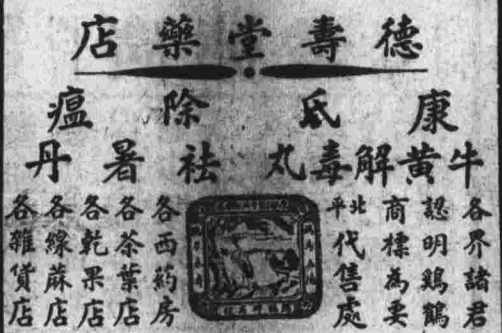 德壽堂藥店
康氏除瘟
牛黃解毒丸 祛暑丹
各界諸君
認明鷄鶴
商標為要
北平代售處
各西葯房
各茶葉店
各乾果店
各線蔴店
各雜貨店